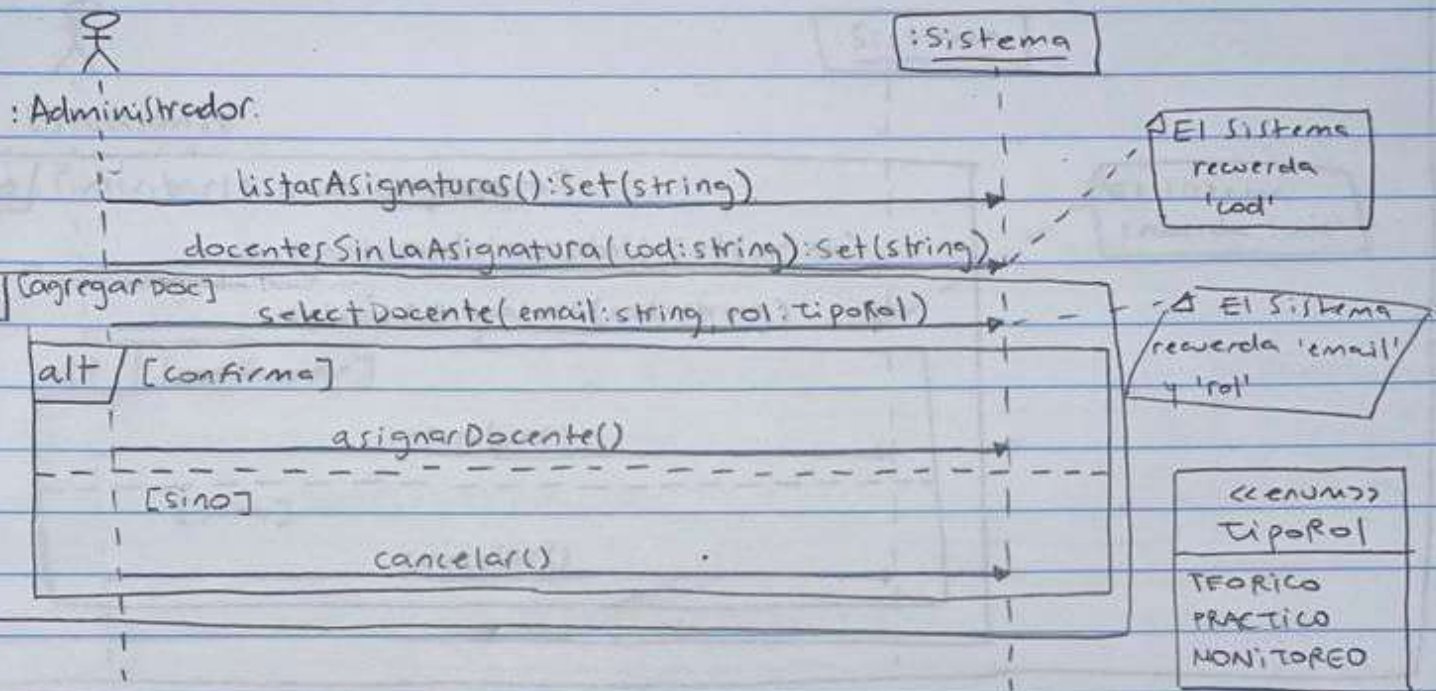 :Sistema
: Administrador.
El Sistema
recuerda
'cod'
listarAsignaturas():Set(string)
docentesSinLaAsignatura(cod:string):Set(string)
[agregarDoc]
selectDocente(email:string, rol:tipoRol)
El Sistema
recuerda 'email'
y 'rol'
alt [confirma]
asignarDocente()
[sino]
cancelar()
<<enum>>
tipoRol
TEORICO
PRACTICO
MONITOREO